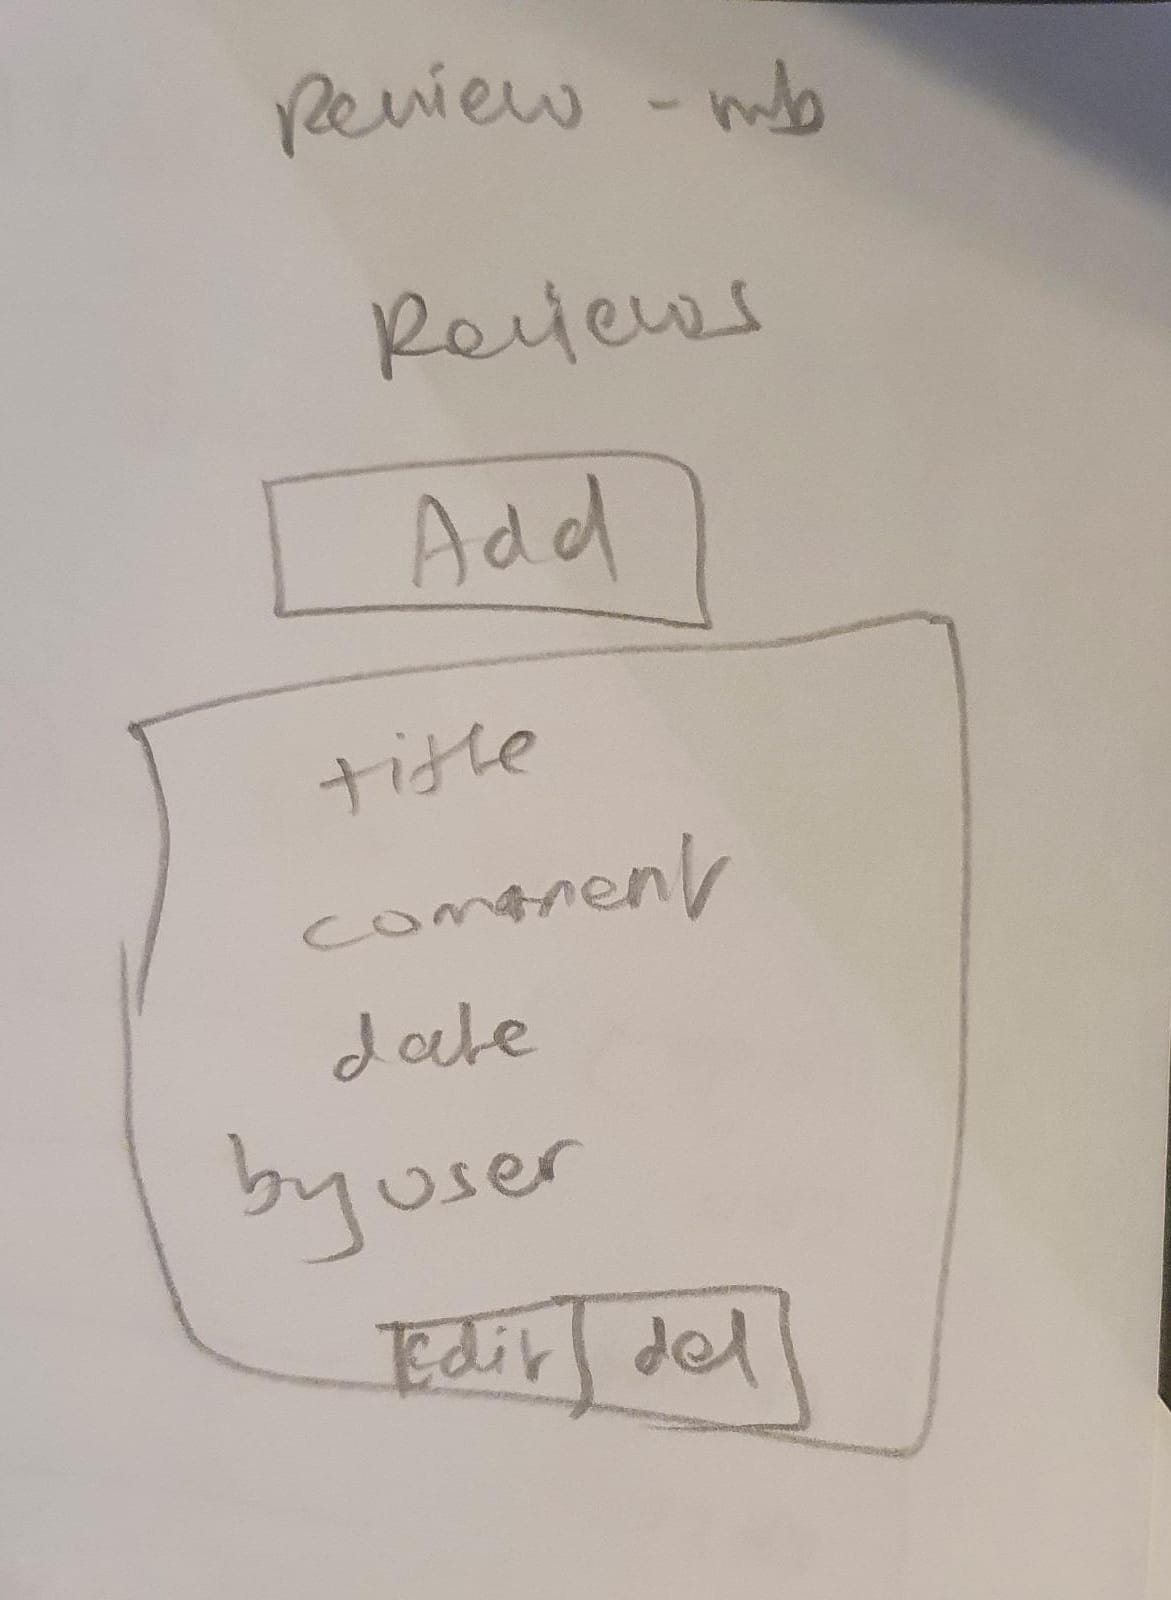 Review - mb
Reviews
Add
title
comment
date
by user
Edit del